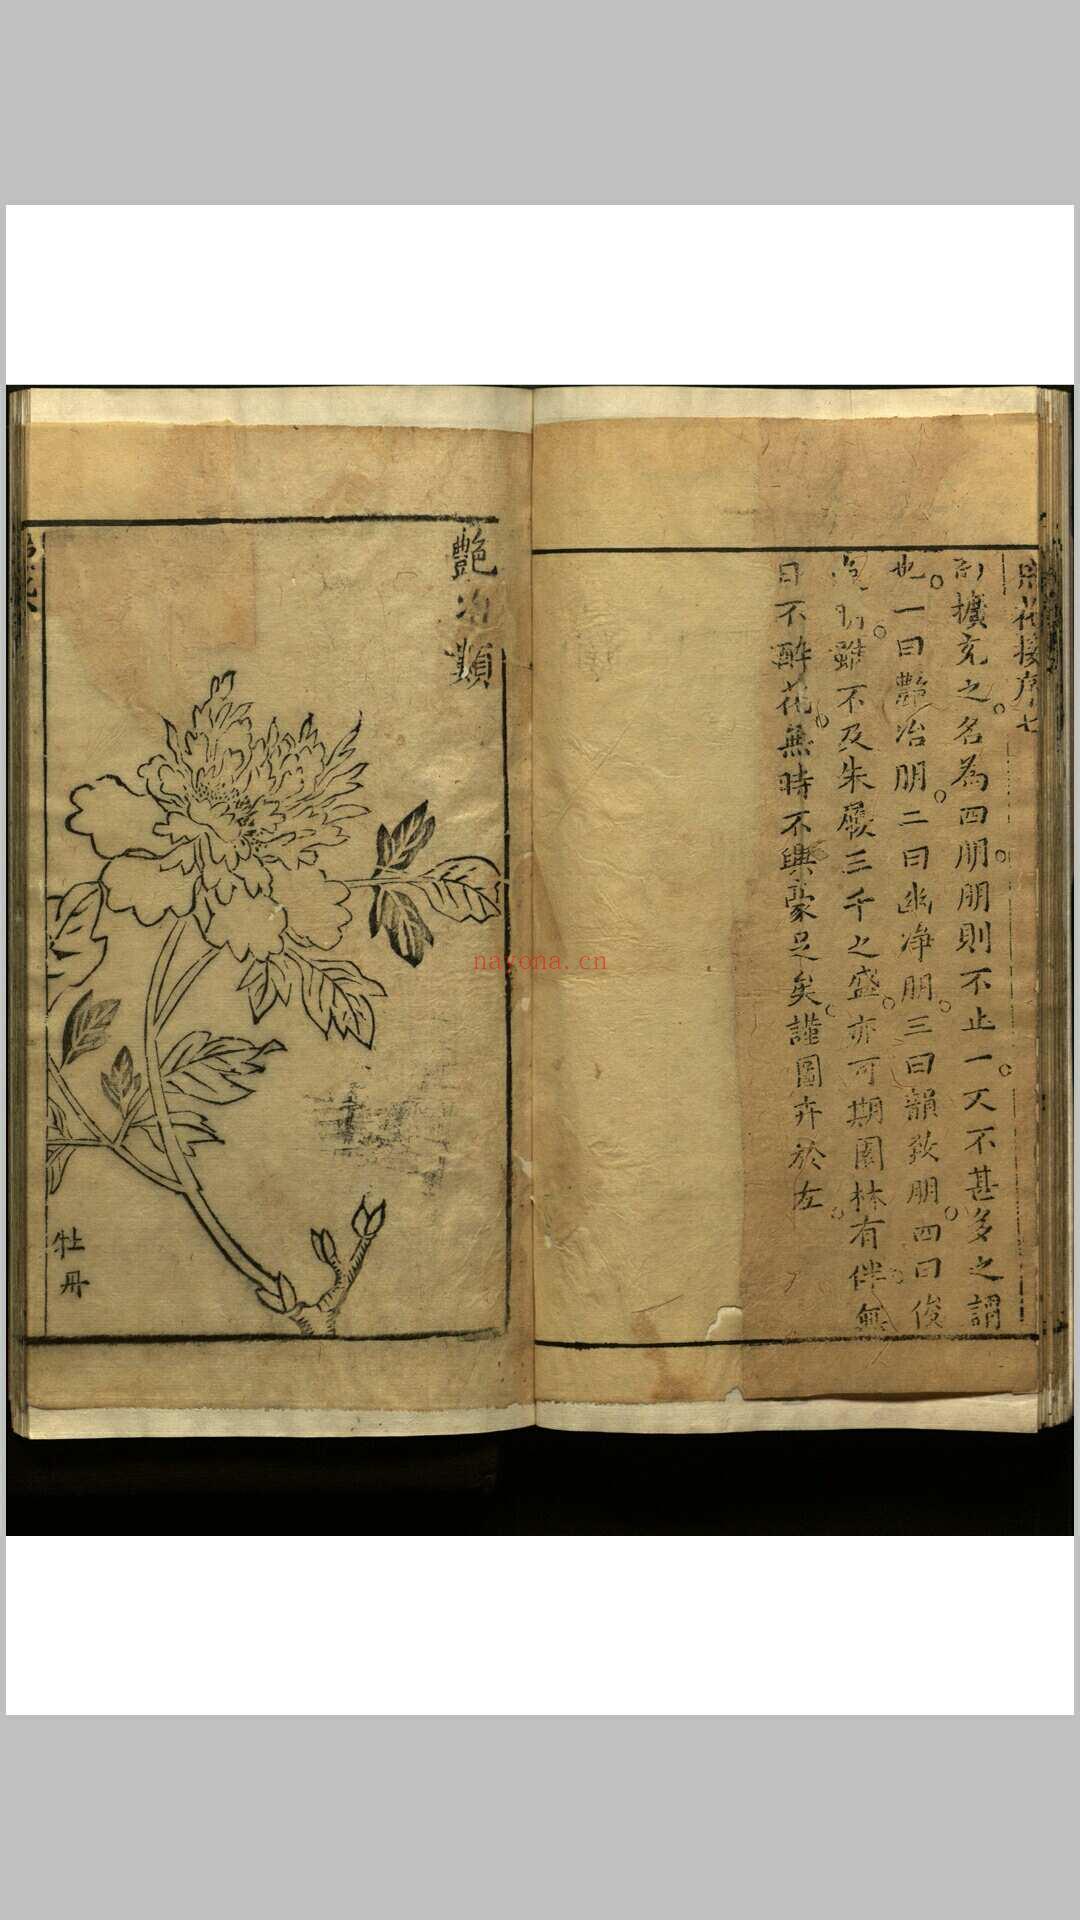 花接序 七
擴充之名為四朋朋則不止一又不甚多之謂
也一曰艷冶朋二曰幽净朋三曰韻致朋四曰俊
朋雖不及朱履三千之盛亦可期園林有伴無
日不醉花無時不興豪足矣謹圖卉於左
艷冶類
牡丹
nayona.cn